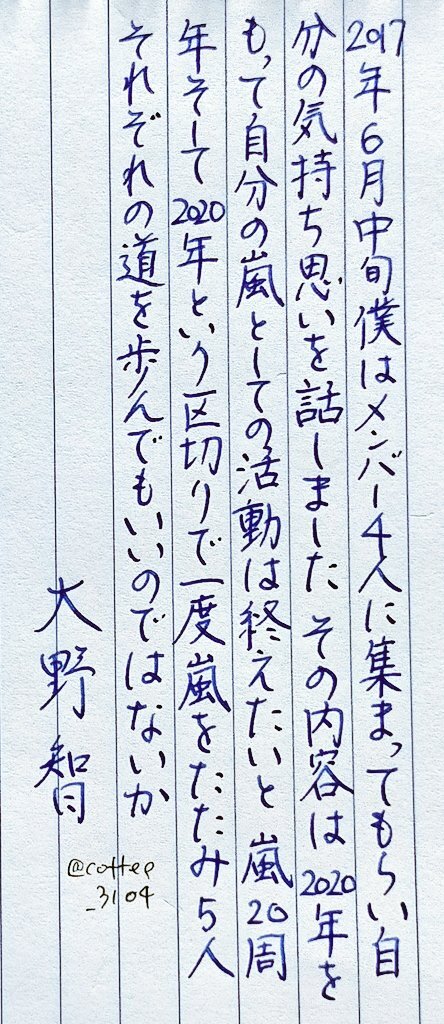 2017年6月中旬僕はメンバー4人に集まってもらい自
分の気持ち思いを話しました その内容は2020年を
もって自分の嵐としての活動は終えたいと 嵐20周
年そして2020年という区切りで一度嵐をたたみ5人
それぞれの道を歩んでもいいのではないか
大野智
@cottep
_3104